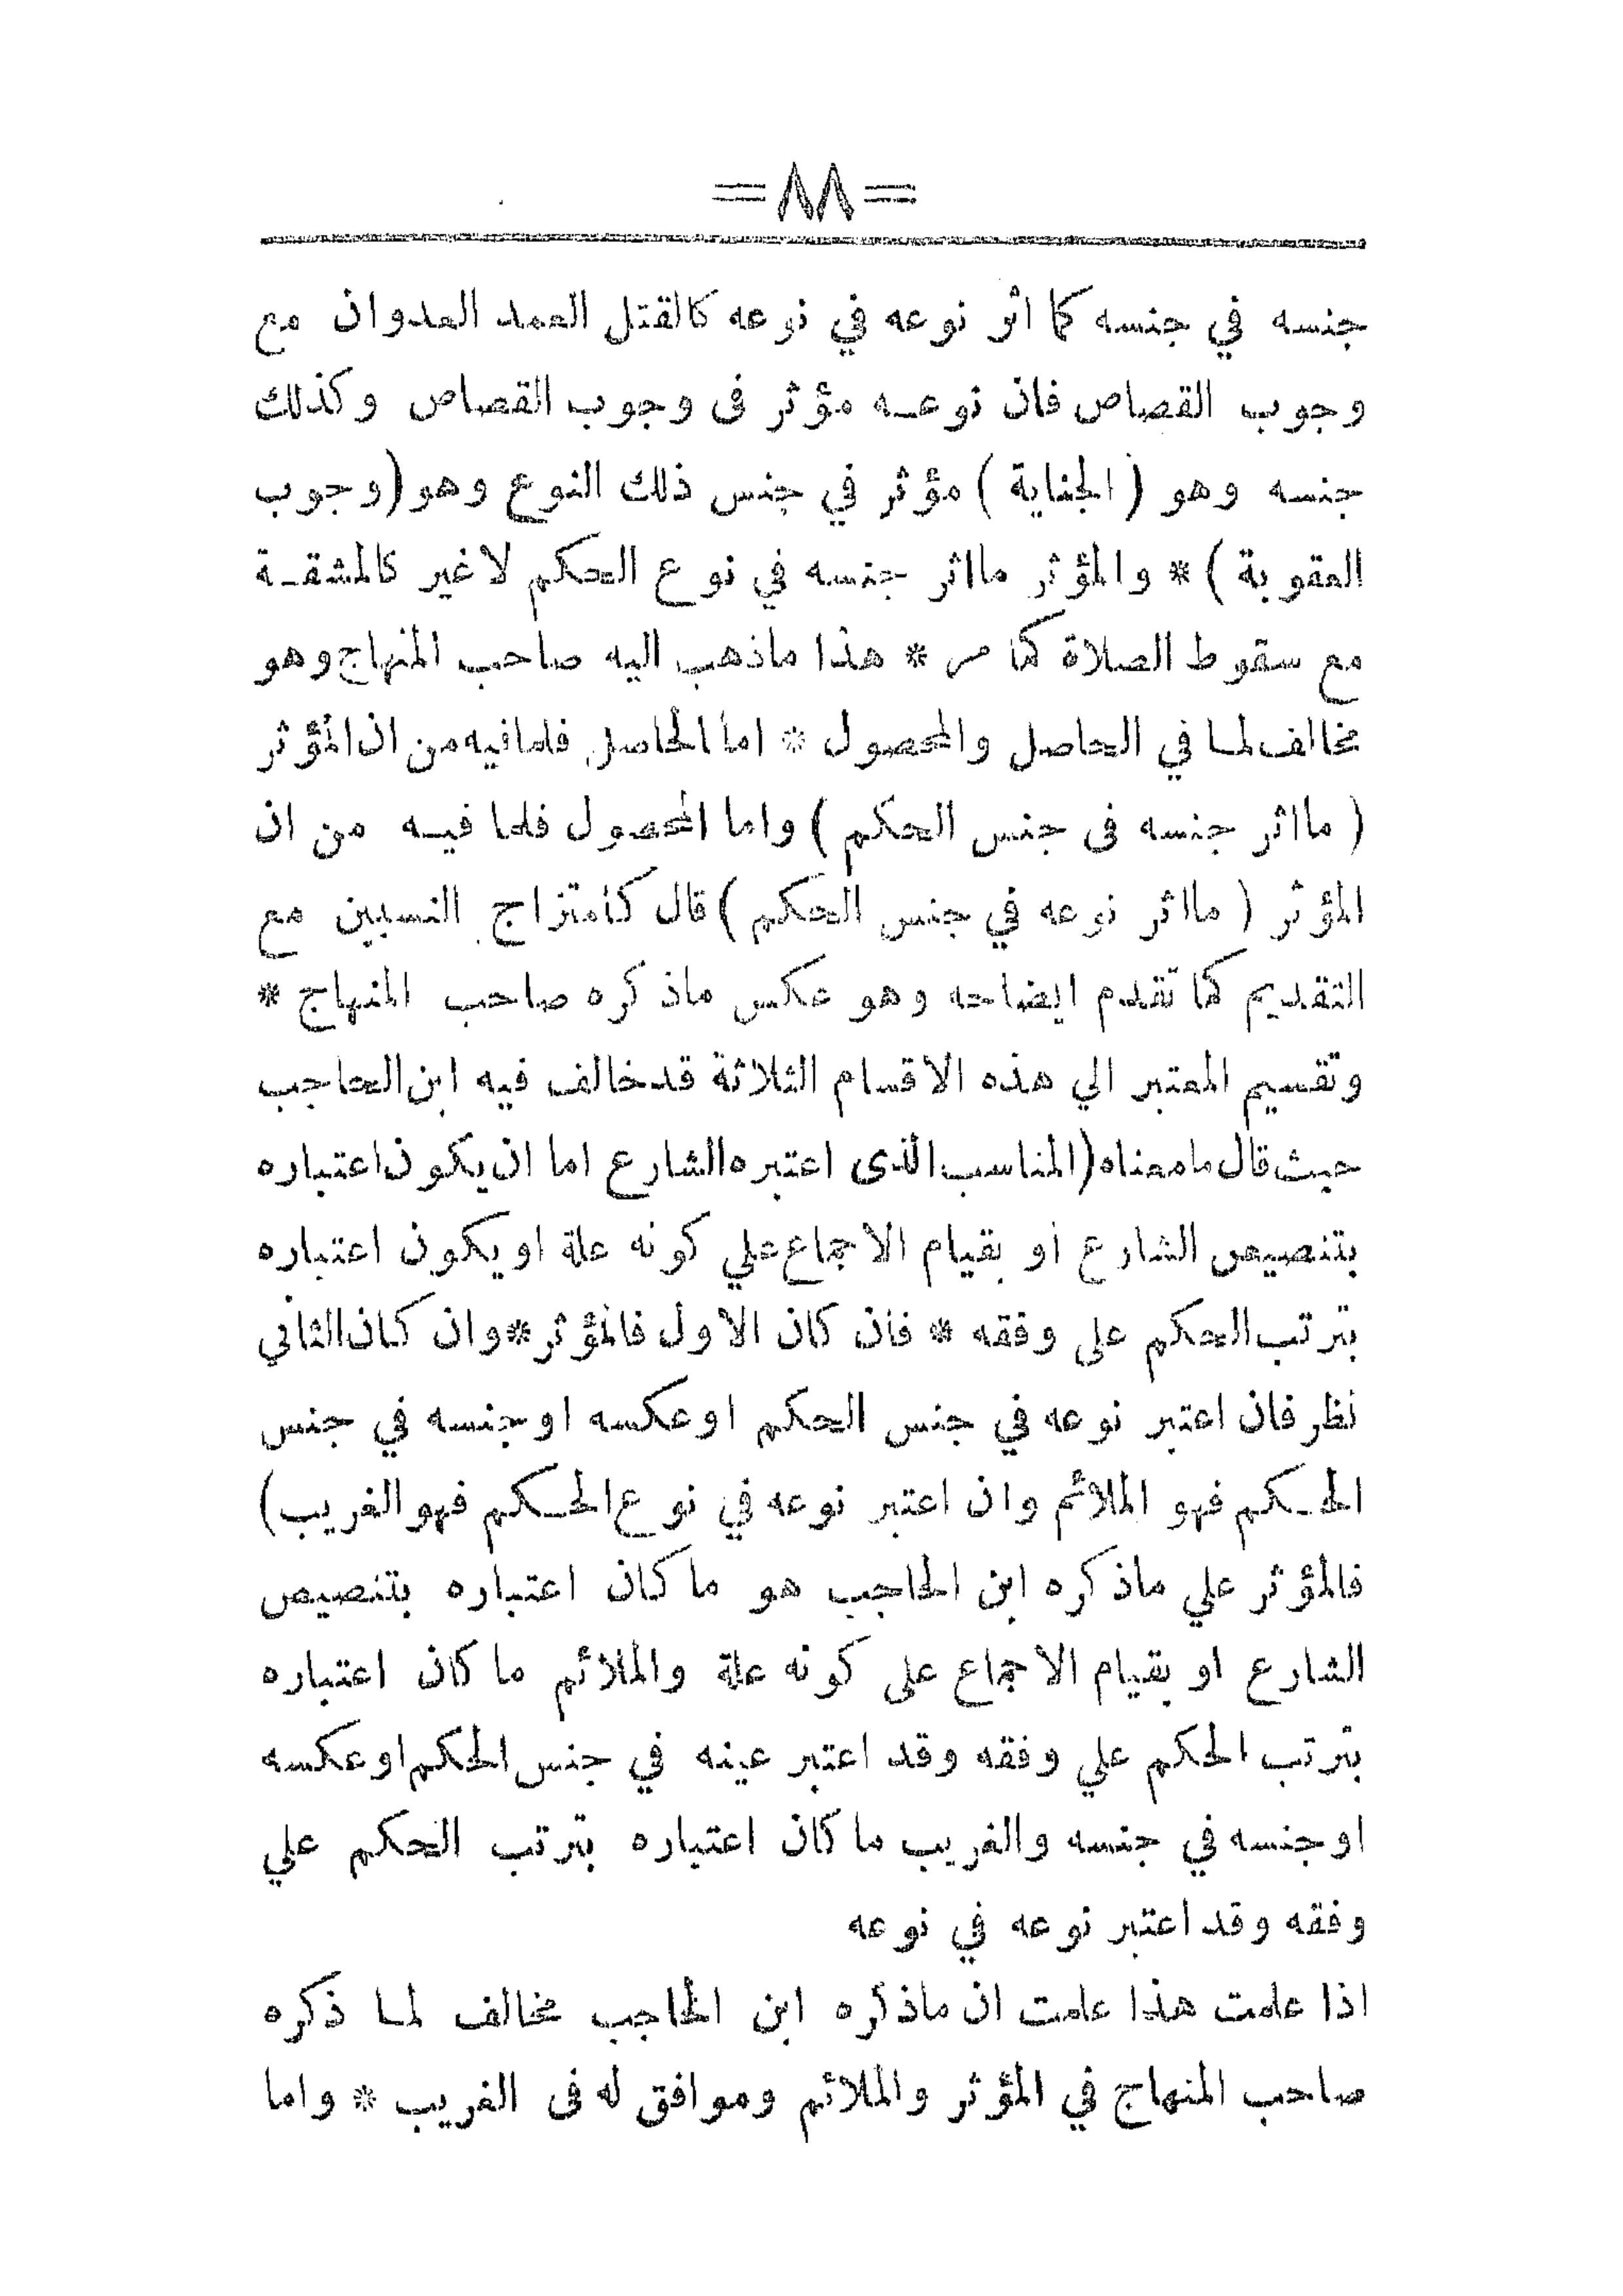 =٨٨=
جنسه في جنسه كما اثر نوعه في نوعه كالقتل العمد العدوان مع
وجوب القصاص فان نوعـه مؤثر فى وجوب القصاص وكذلك
جنسه وهو ( الجناية ) مؤثر في جنس ذلك النوع وهو ( وجوب
العقوبة ) * والمؤثر مااثر جنسه في نوع الحكم لاغير كالمشقـة
مع سقوط الصلاة كما مر * هذا ماذهب اليه صاحب المنهاج وهو
مخالف لما في الحاصل والمحصول * اما الحاصل فلما فيه من ان المؤثر
( مااثر جنسه فى جنس الحكم ) واما المحصول فلما فيـه من ان
المؤثر ( مااثر نوعه في جنس الحكم ) قال كامتزاج النسبين مع
التقديم كما تقدم ايضاحه وهو عكس ماذكره صاحب المنهاج *
وتقسيم المعتبر الي هذه الاقسام الثلاثة قدخالف فيه ابن الحاجب
حيث قال مامعناه ( المناسب الذى اعتبره الشارع اما ان يكون اعتباره
بتنصيص الشارع او بقيام الاجماع علي كونه علة او يكون اعتباره
بترتب الحكم على وفقه * فان كان الاول فالمؤثر * وان كان الثاني
نظر فان اعتبر نوعه في جنس الحكم اوعكسه اوجنسه في جنس
الحـكم فهو الملائم وان اعتبر نوعه في نوع الحـكم فهو الغريب )
فالمؤثر علي ماذكره ابن الحاجب هو ما كان اعتباره بتنصيص
الشارع او بقيام الاجماع على كونه علة والملائم ما كان اعتباره
بترتب الحكم علي وفقه وقد اعتبر عينه في جنس الحكم اوعكسه
اوجنسه في جنسه والغريب ما كان اعتباره بترتب الحكم علي
وفقه وقد اعتبر نوعه في نوعه
اذا علمت هذا علمت ان ماذكره ابن الحاجب مخالف لما ذكره
صاحب المنهاج في المؤثر والملائم وموافق له فى الغريب * واما